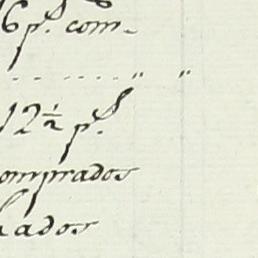 6 p.s com-
......... " "
12½ p.s
omprados
ados